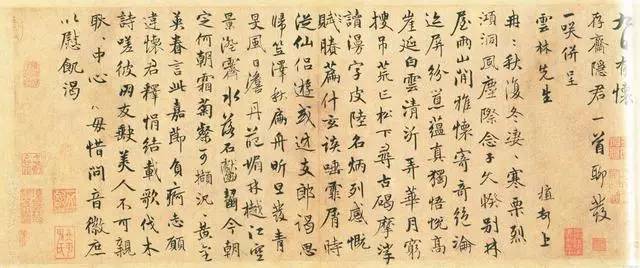 九日有懷
存齋隱君一首聊發
一咲併呈
雲林先生 植上
冉〻秋復冬淒〻寒栗烈
澒洞風塵際念子久睽別林
屋兩山間雅懷寄奇絕淪
迹屏紛蘊真獨悟悅高
崖延白雲清沂弄華月窮
搜吊荒丘松下尋古碣摩挲
讀湯字皮陸名炳列感慨
賦勝篇什玄談唾霏屑時
從仙侶遊或近支郎謁思
歸笠澤秋扁舟昕旦發青
旻風日澹丹葩媚林樾江空
景澄霽水落石齒齧今朝
定何朝霜菊粲可擷況〻黃金
英眷言此嘉節負痾志願
違懷君釋悁結載歌伐木
詩嗟彼朋友缺美人不可親
耿〻中心〻毋惜問音徽庶
以慰飢渴